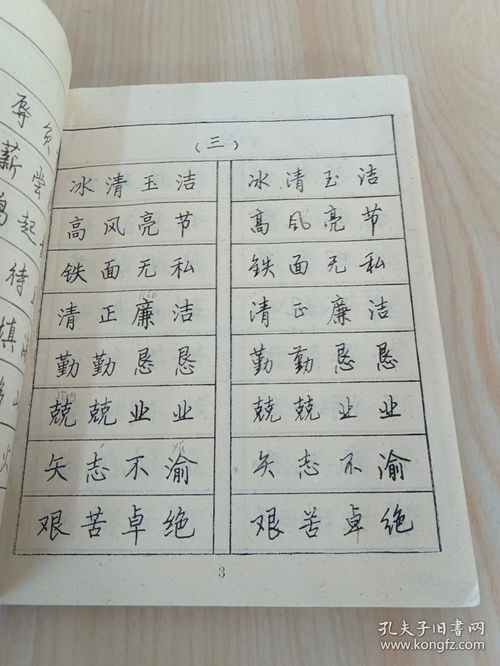 （三）
冰清玉洁 冰清玉洁
高风亮节 高风亮节
铁面无私 铁面无私
清正廉洁 清正廉洁
勤勤恳恳 勤勤恳恳
兢兢业业 兢兢业业
矢志不渝 矢志不渝
艰苦卓绝 艰苦卓绝
3
辱负
薪尝
起
待
棋
火
孔夫子旧书网
www.kongfz.com